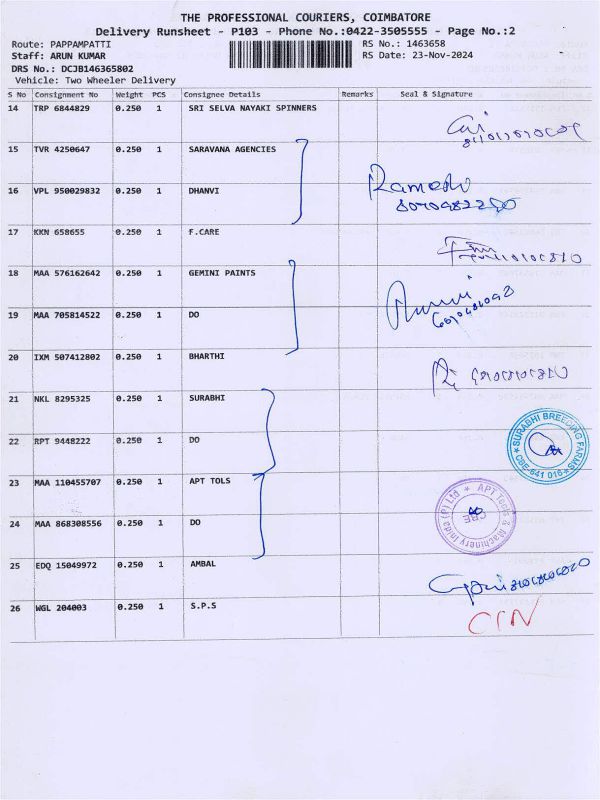 THE PROFESSIONAL COURIERS, COIMBATORE
Delivery Runsheet - P103 - Phone No.:0422-3505555 - Page No.:2
Route: PAPPAMPATTI RS No.: 1463658
Staff: ARUN KUMAR RS Date: 23-Nov-2024
DRS No.: DCJB146365802
Vehicle: Two Wheeler Delivery
S No Consignment No Weight PCS Consignee Details Remarks Seal & Signature
14 TRP 6844829 0.250 1 SRI SELVA NAYAKI SPINNERS
15 TVR 4250647 0.250 1 SARAVANA AGENCIES
16 VPL 950029832 0.250 1 DHANVI
17 KKN 658655 0.250 1 F.CARE
18 MAA 576162642 0.250 1 GEMINI PAINTS
19 MAA 705814522 0.250 1 DO
20 IXM 507412802 0.250 1 BHARTHI
21 NKL 8295325 0.250 1 SURABHI
22 RPT 9448222 0.250 1 DO
SURABHI BREEDING FARMS
CBE-641 016
23 MAA 110455707 0.250 1 APT TOLS
24 MAA 868308556 0.250 1 DO
APT Tools & Machinery India (P) Ltd
CBE
25 EDQ 15049972 0.250 1 AMBAL
26 WGL 204003 0.250 1 S.P.S